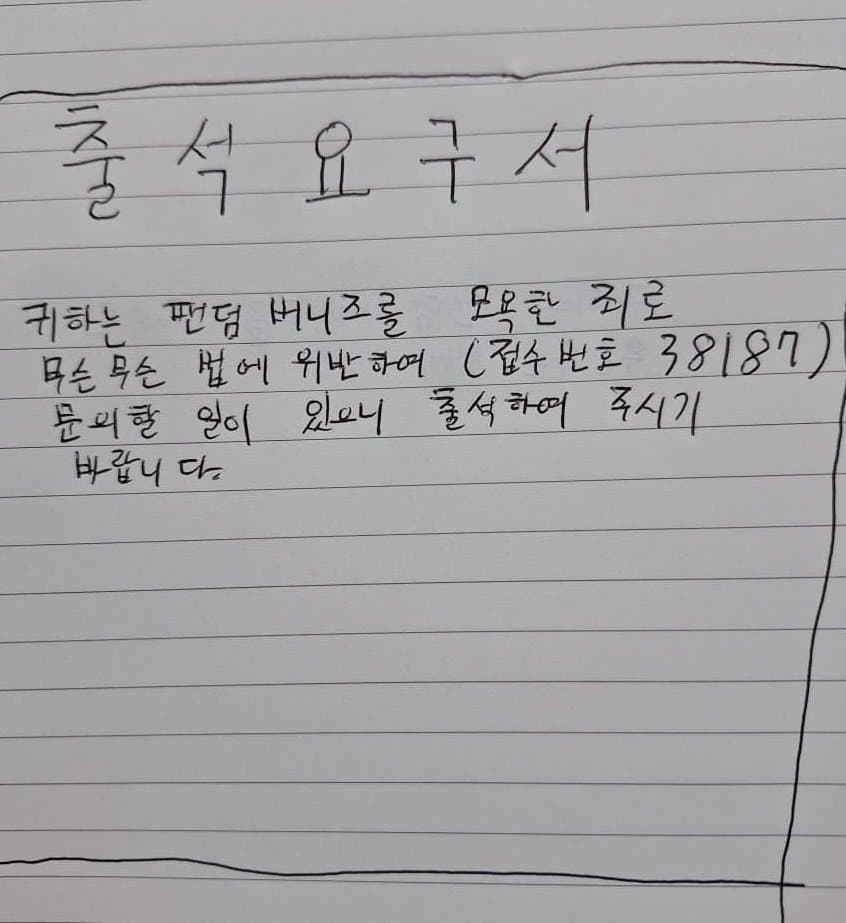 출석요구서
귀하는 팬덤 버니즈를 모욕한 죄로
무슨무슨 법에 위반하여 (접수번호 38187)
문의할 일이 있으니 출석하여 주시기
바랍니다.